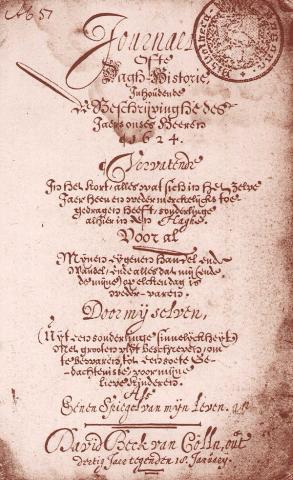 Ab 51
Journael
Ofte
Dagh-Historie,
Inhoudende
De Beschrijvinghe des
Jaers onses Heeren
1624.
Vervatende
In het kort, alles wat sich in het zelve
Jaer heen en weder merckelijcks toe-
gedragen heeft, sonderlinge
alhier in den Haghe.
Voor al
Mijnen eygenen handel ende
Wandel, ende alles dat mij (ende
de mijne) op elcken dag is
weder-varen.
Door mij selven,
(Uyt een sonderlinge sinnelyckheyt)
Met grooten vlijt beschreven, om
te bewaren, tot een soete Ge-
dachtenisse voor mijne
lieve kinderen.
Als
Eenen Spiegel van mijn Leven.
David Beck van Cölln, out
dertig Jaer tegen den 18. January.